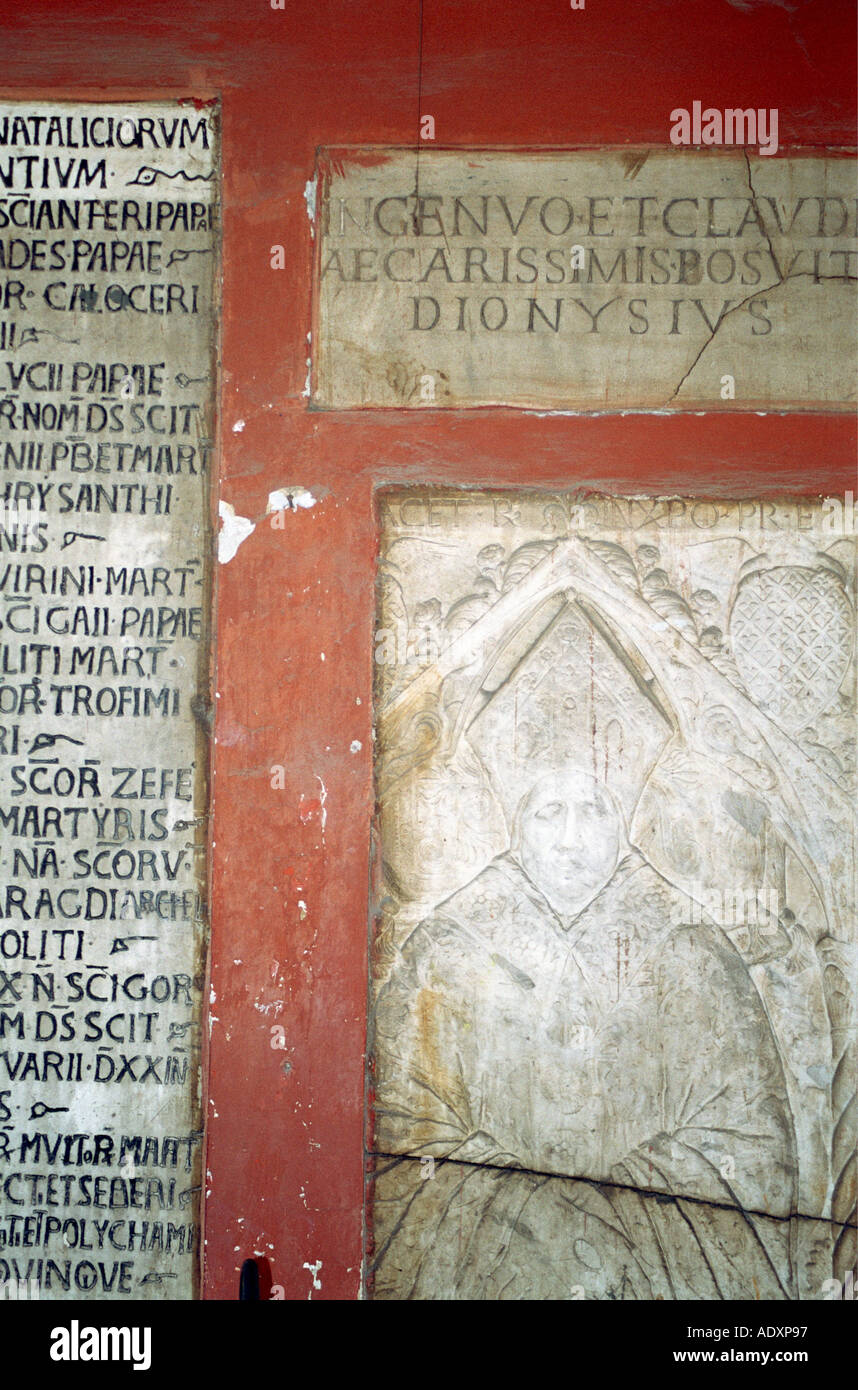 NATALICIORVM
NTIVM
SC̄IANTERI PAPAE
ADES PAPAE
OR· CALOCERI
II
LVCII PAPAE
R̄·NOM̄·D̄S SCIT
ENII·P̄B̄ ET MART
HRYSANTHI·
NIS·
VIRINI·MART̄·
SC̄I GAII·PAPAE
LITI MART̄·
OR̄·TROFIMI
RI·
SC̄OR̄ ZEFE
MARTYRIS
NĀ·SCORV·
ARAGDI ARCHEL
OLITI·
XN̄·SC̄I GOR
M D̄S SCIT
VARII·D̄XXIN̄
S·
R̄·MVIT·OR̄·MART
ECTI·ET SEBERI
ET POLYCHAMI
OVINQVE
INGENVO·ET·CLAVDI
AE CARISSIMIS·POSVIT
DIONYSIVS
ACET
alamy
ADXP97
www.alamy.com